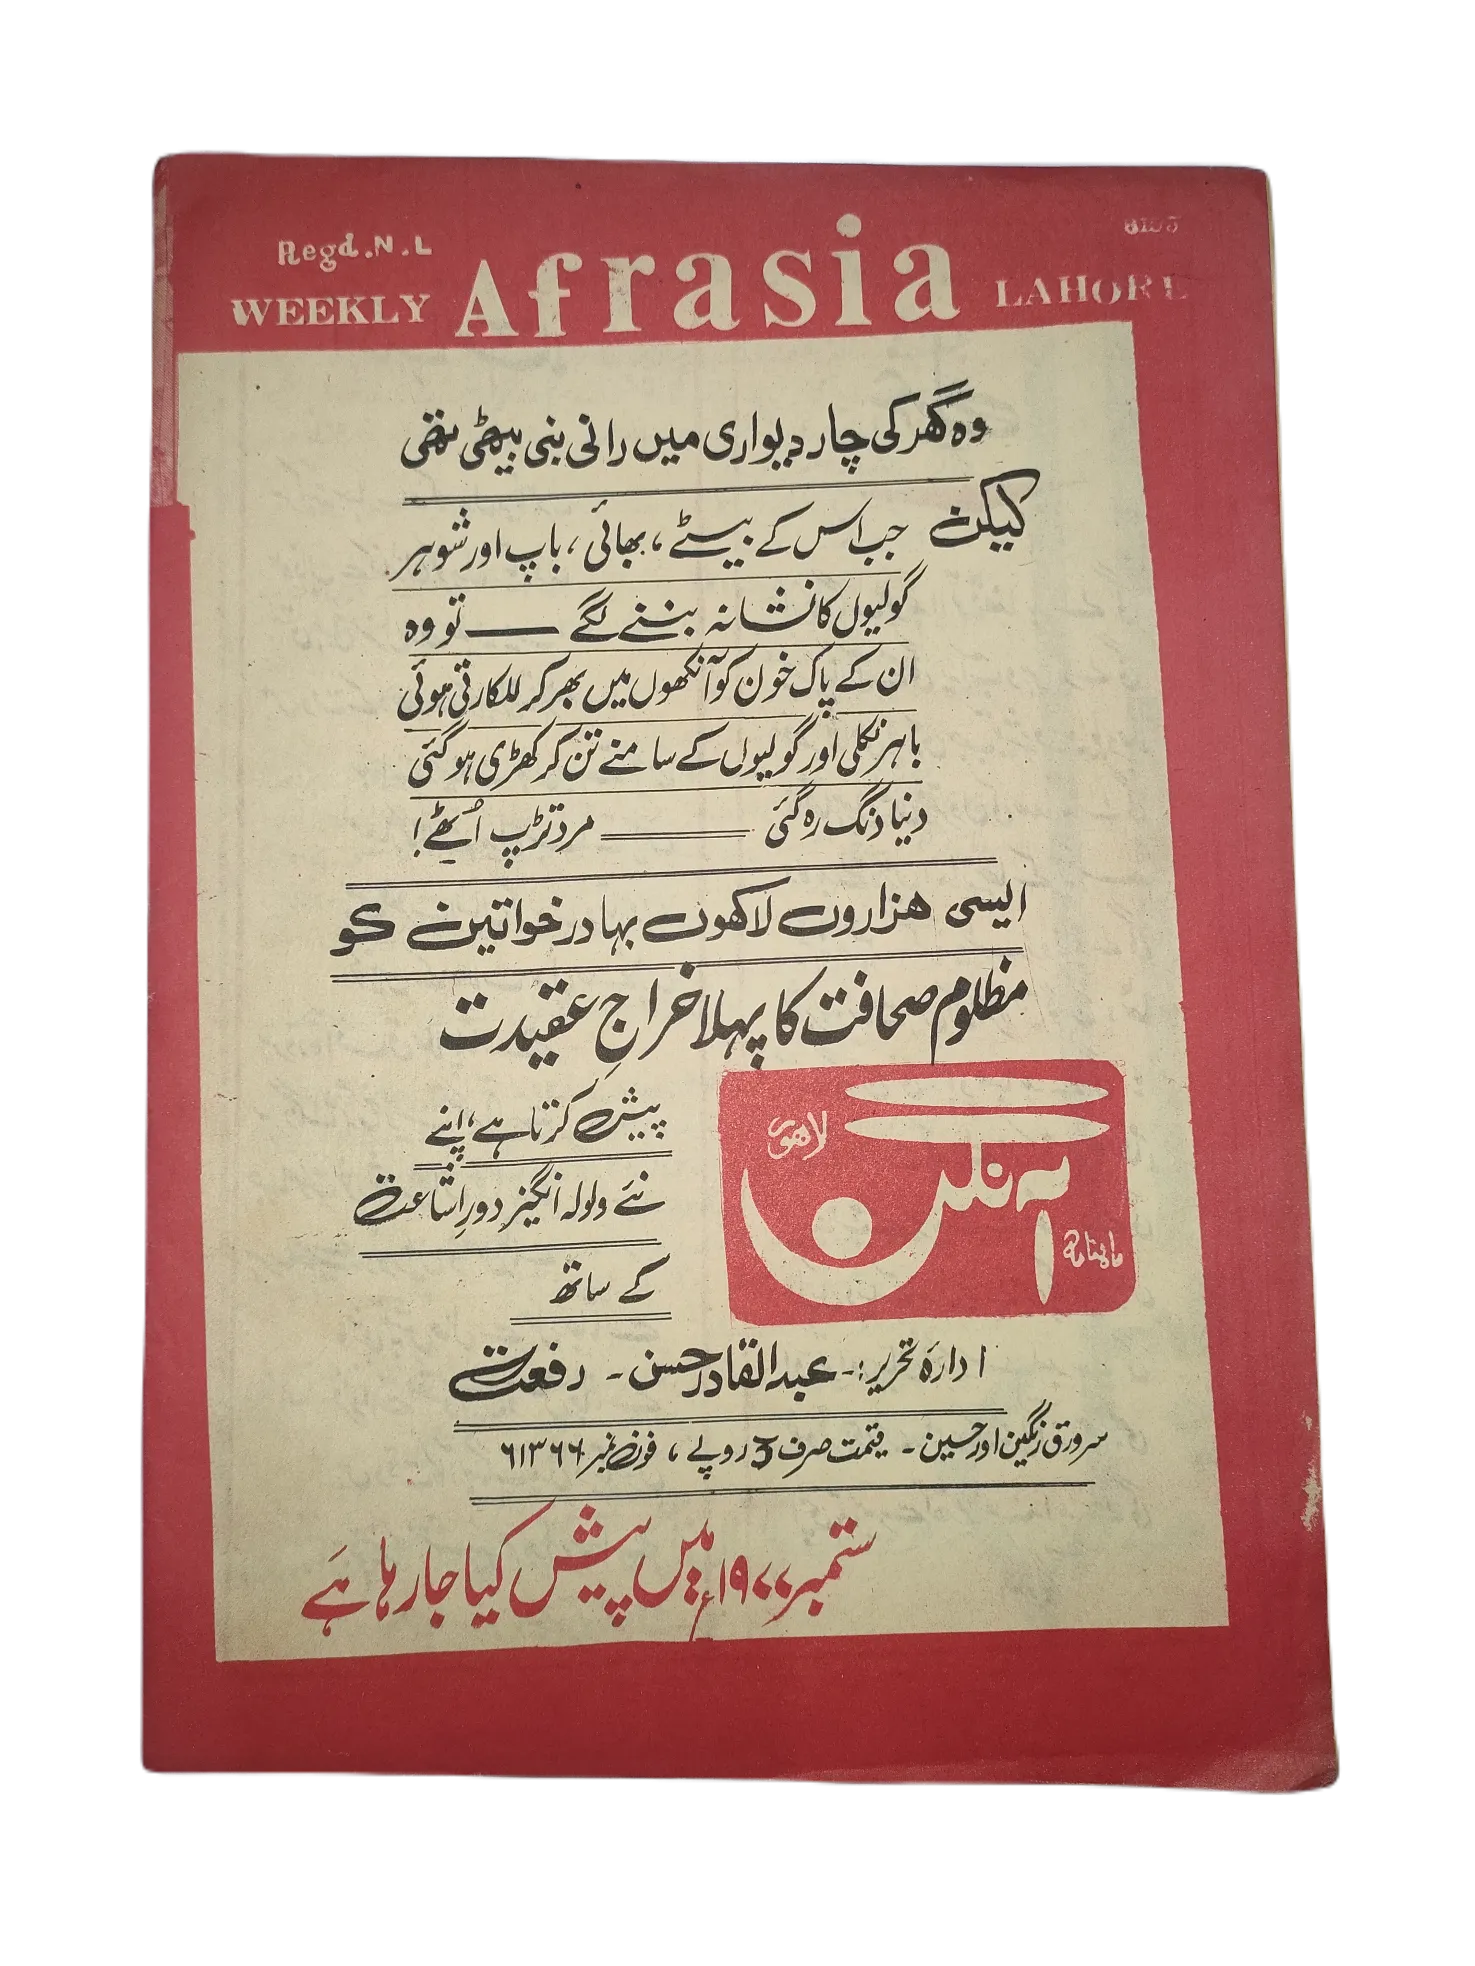 Regd.N.L
WEEKLY Afrasia LAHORE
وہ گھر کی چار دیواری میں رانی بنی بیٹھی تھی
لیکن جب اس کے بیٹے، بھائی، باپ اور شوہر
گولیوں کا نشانہ بننے لگے — تو وہ
ان کے پاک خون کو آنکھوں میں بھر کر للکارتی ہوئی
باہر نکلی اور گولیوں کے سامنے تن کر کھڑی ہو گئی
دنیا دنگ رہ گئی — مرد تڑپ اُٹھے!
ایسی ہزاروں لاکھوں بہادر خواتین کو
مظلوم صحافت کا پہلا خراجِ عقیدت
ماہنامہ آنگن لاہور
پیش کرتا ہے، اپنے
نئے ولولہ انگیز دورِ اشاعت
کے ساتھ
ادارہ تحریر:- عبدالقادر حسن - رفعت
سرورق رنگین اور حسین - قیمت صرف 3 روپے، فون نمبر ۶۱۳۶۶
ستمبر ۱۹۷۷ء میں پیش کیا جا رہا ہے